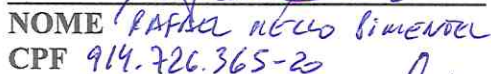 NOME RAFAEL MELLO PIMENTEL
CPF 914.726.365-20